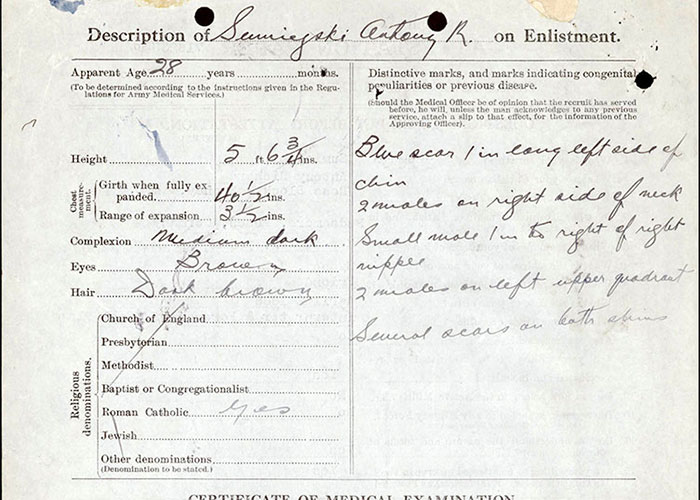 Description of Semiegski Antony R. on Enlistment.
Apparent Age 28 years months.
(To be determined according to the instructions given in the Regulations for Army Medical Services.)
Height 5 ft. 6 3/4 ins.
Chest measurement.
Girth when fully expanded 40 1/2 ins.
Range of expansion 3 1/2 ins.
Complexion Medium dark
Eyes Brown
Hair Dark brown
Religious denominations.
Church of England
Presbyterian
Methodist
Baptist or Congregationalist
Roman Catholic Yes
Jewish
Other denominations
(Denomination to be stated.)
Distinctive marks, and marks indicating congenital
peculiarities or previous disease.
(Should the Medical Officer be of opinion that the recruit has served
before, he will, unless the man acknowledges to any previous
service, attach a slip to that effect, for the information of the
Approving Officer).
Blue scar 1 in long left side of
chin
2 moles on right side of neck
Small mole 1 in to right of right
nipple
2 moles on left upper quadrant
Several scars on both shins
CERTIFICATE OF MEDICAL EXAMINATION